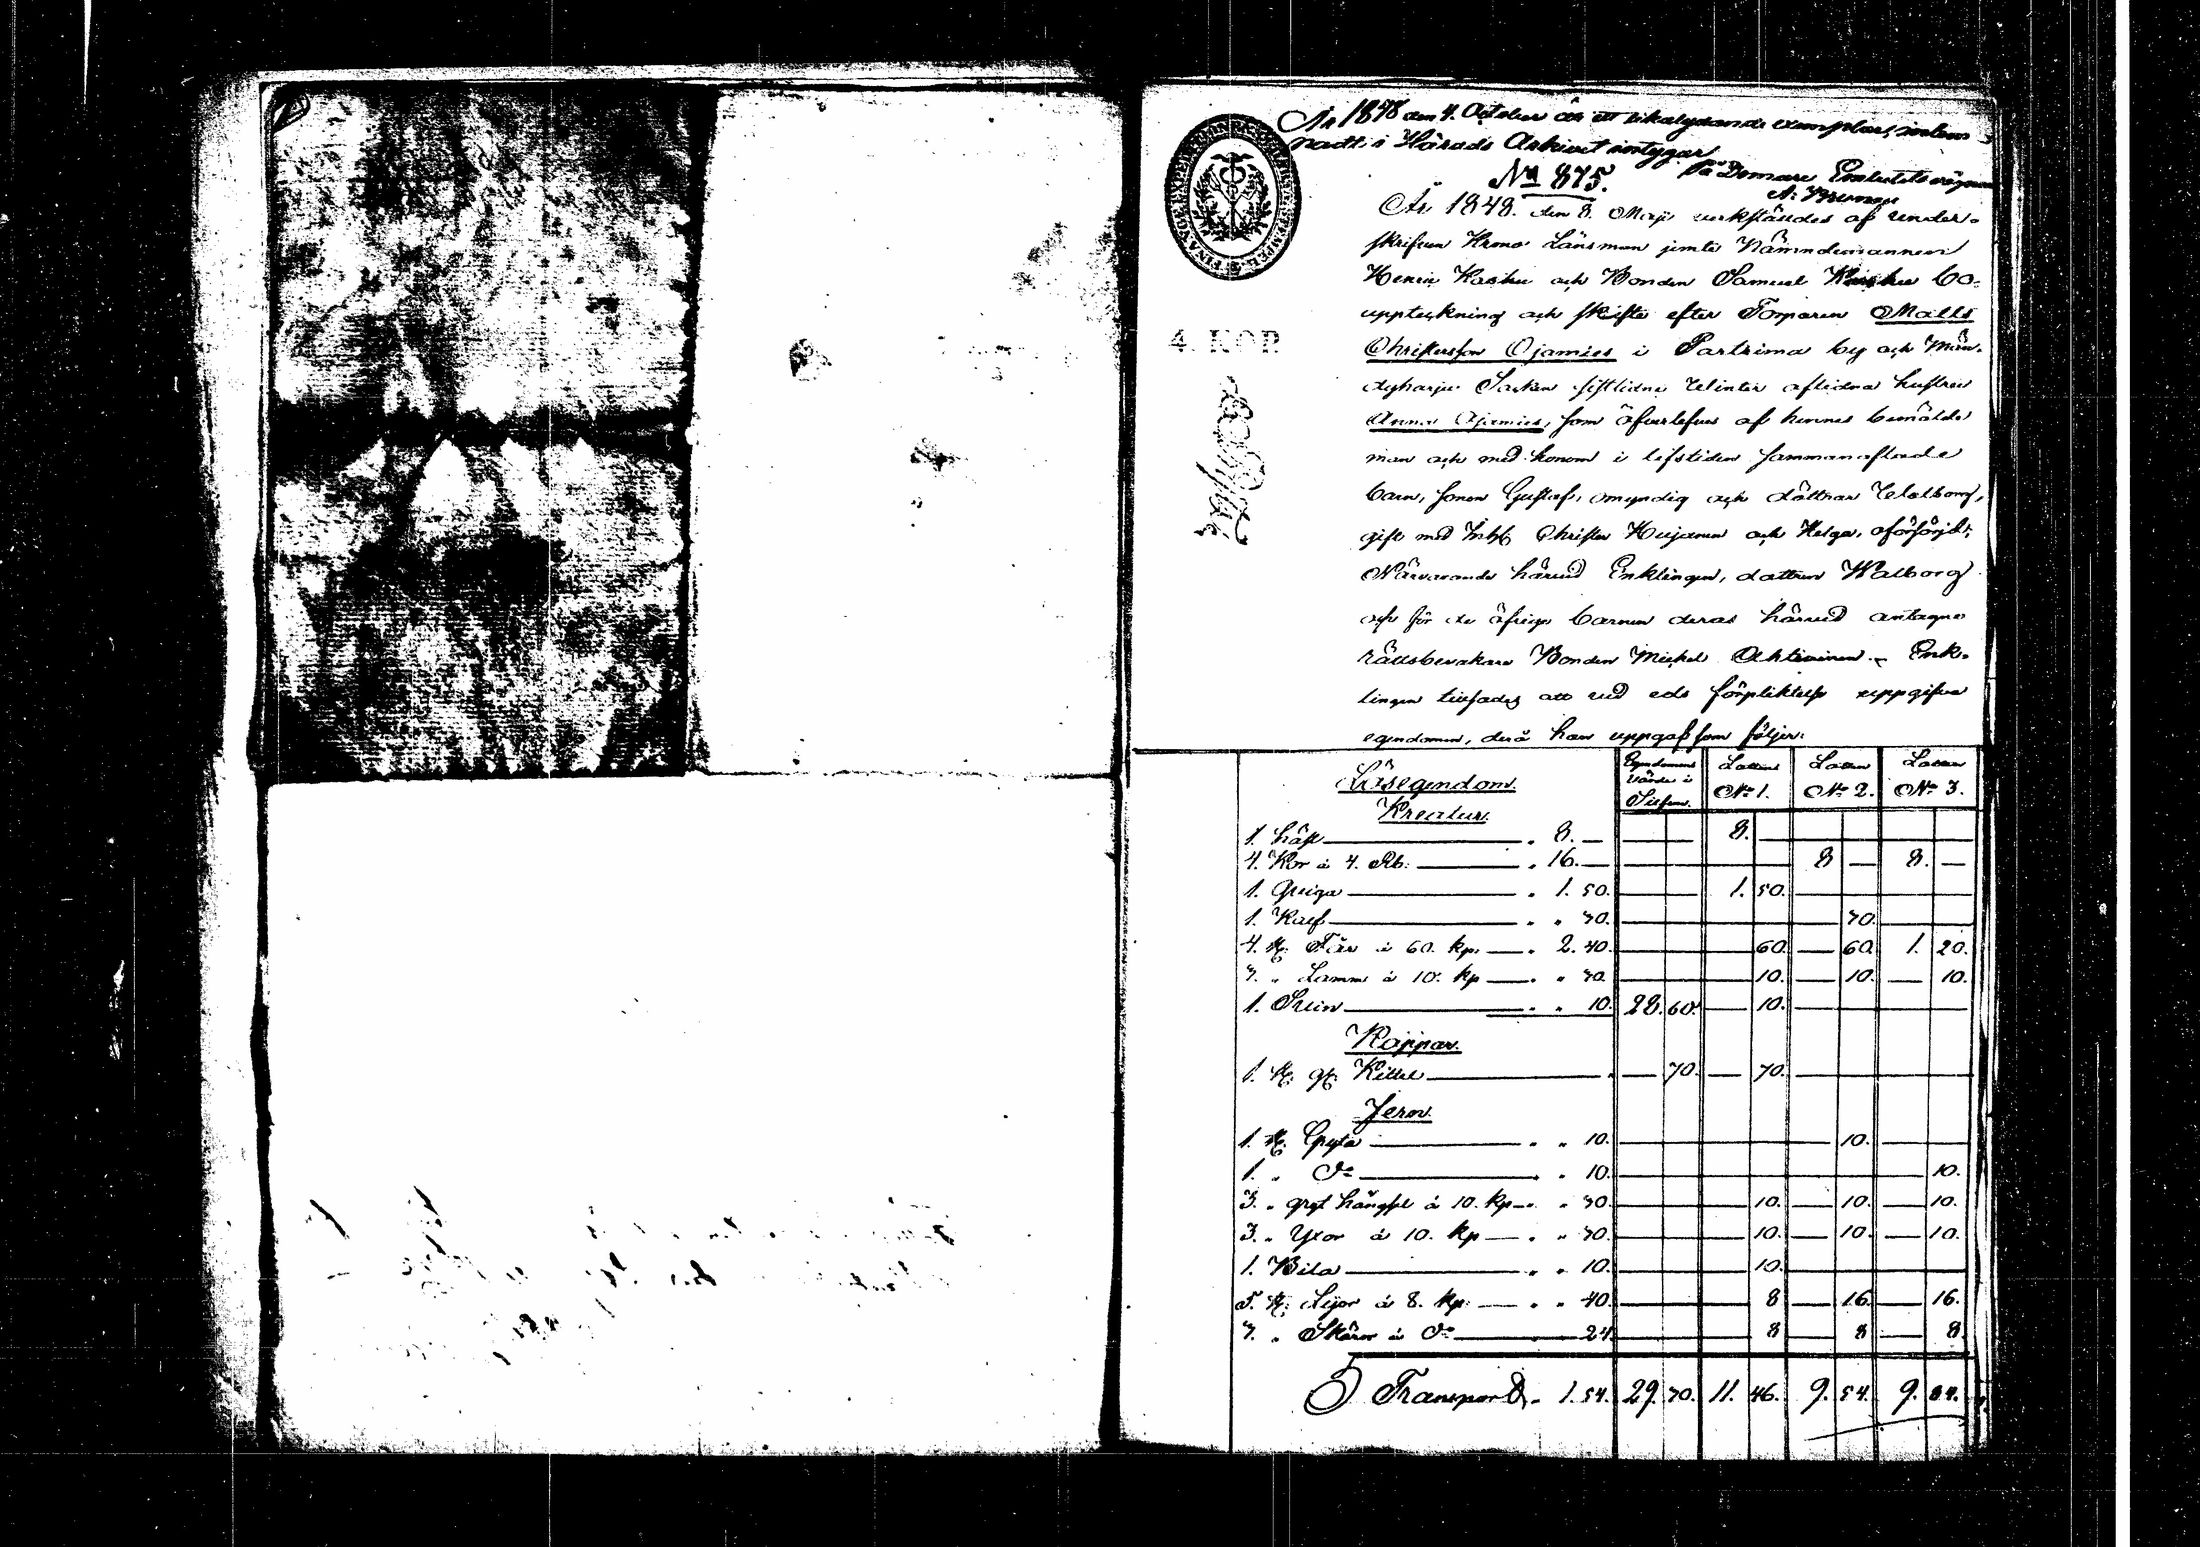 År 1848 den 4. October är ett likalydande exemplar inlem
nadt i Härads Arkivet intygar
På Domare Embetets vägnar
No 875.
År 1848. den 8. Maji verkställdes af under-
skrifven Krono Länsman jemte Nämndemannen
Henric Kashu och Bonden Samuel bo-
uppteckning och skifte efter Torparen Matts
Christersson Ojamies i Partsima by och Män-
syharju Socken sistlidne Winter aflidna hustru
Anna Ojamies, som öfverlefves af hennes bemälde
man och med honom i lifstiden sammanaflade
barn, sonen Gustaf, omyndig och döttrar Walborg,
gift med Inh. Christer Hujanen och Helga, oförsörjd;
Närvarande härvid Enklingen, dottren Walborg
och för de öfrige barnen deras härvid antagne
rättsbevakare Bonden Michel Ahtiainen. Enk-
lingen tillsades att vid eds förpliktelse uppgifva
egendomen, derå han uppgaf som följer:
4. KOP.
Lösegendom.
Egendomens värde i Silfver.
Lotten No 1.
Lotten No 2.
Lotten No 3.
Kreatur.
1. häst 8. — 8.
4. Kor à 4. Rb. 16. — 8 — 8. —
1. Qviga 1. 50. 1. 50.
1. Kalf 30. 30.
4. st. Får à 60. kp. 2. 40. 60. 60. 1. 20.
3. " Lamm à 10. kp 30. 10. 10. 10.
1. Svin 10. 28. 60. 10.
Koppar.
1. st. gl. Kittel 70. 70.
Jern.
1. st. Gryta 10. 10.
1. " do 10. 10.
3. " gryt hängsel à 10. kp 30. 10. 10. 10.
3. " Yxor à 10. kp 30. 10. 10. 10.
1. Bila 10. 10.
5. st. Lijor à 8. kp. 40. 8 16. 16.
3. " Skäror à do 24. 8 8 8.
Transport 1. 54. 29. 30. 11. 46. 9. 54. 9.